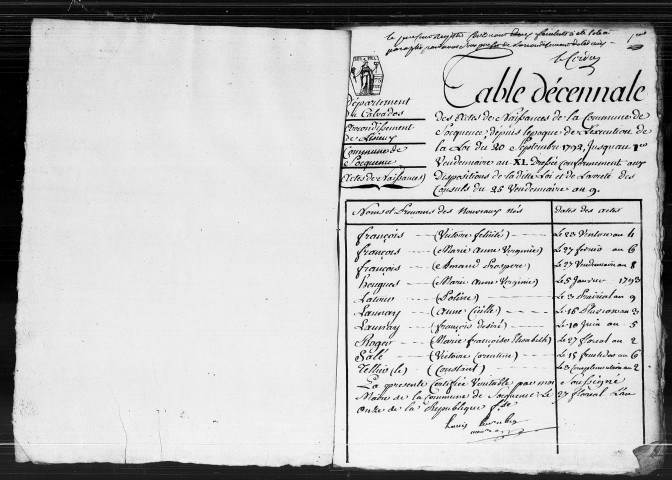 le present Registre
Table décennale
Département
du Calvados
Arrondissement
de Lisieux
Commune de
Socquence
(Actes de Naissances)
des Actes de Naissances de la Commune de
Socquence, depuis l'epoque de l'execution de
la Loi du 20 Septembre 1792, jusqu'au 1er
Vendemiaire an XI. Dressée conformement aux
Dispositions de la ditte Loi et de l'arreté des
Consuls du 25 Vendemiaire an 9.
Noms et Prenoms des Nouveaux nés dates des actes
françois (Victoire felicité) Le 23 Ventose an 4
françois (Marie Anne Virginie) Le 27 fevrier an 6
françois (Amand Prospere) Le 27 Vendemiaire an 8
heugues (Marie Anne Virginie) Le 5 Janvier 1793
Latour Le 3 Prairial an 9
Launay (Anne) Le 16 Pluviose an 3
Launay (françois desiré) Le 10 Juin an 5
Roger (Marie françoise Elisabeth) Le 27 floreal an 2
Salé (Victoire Corentine) Le 15 fructidor an 6
Tellier (le) (Constant) Le 3 an 2
La presente Certifiée Veritable par moi Soussigné
Maire de la Commune de Socquence Le 27 floreal L'an
onze de la Republique f.se
Louis